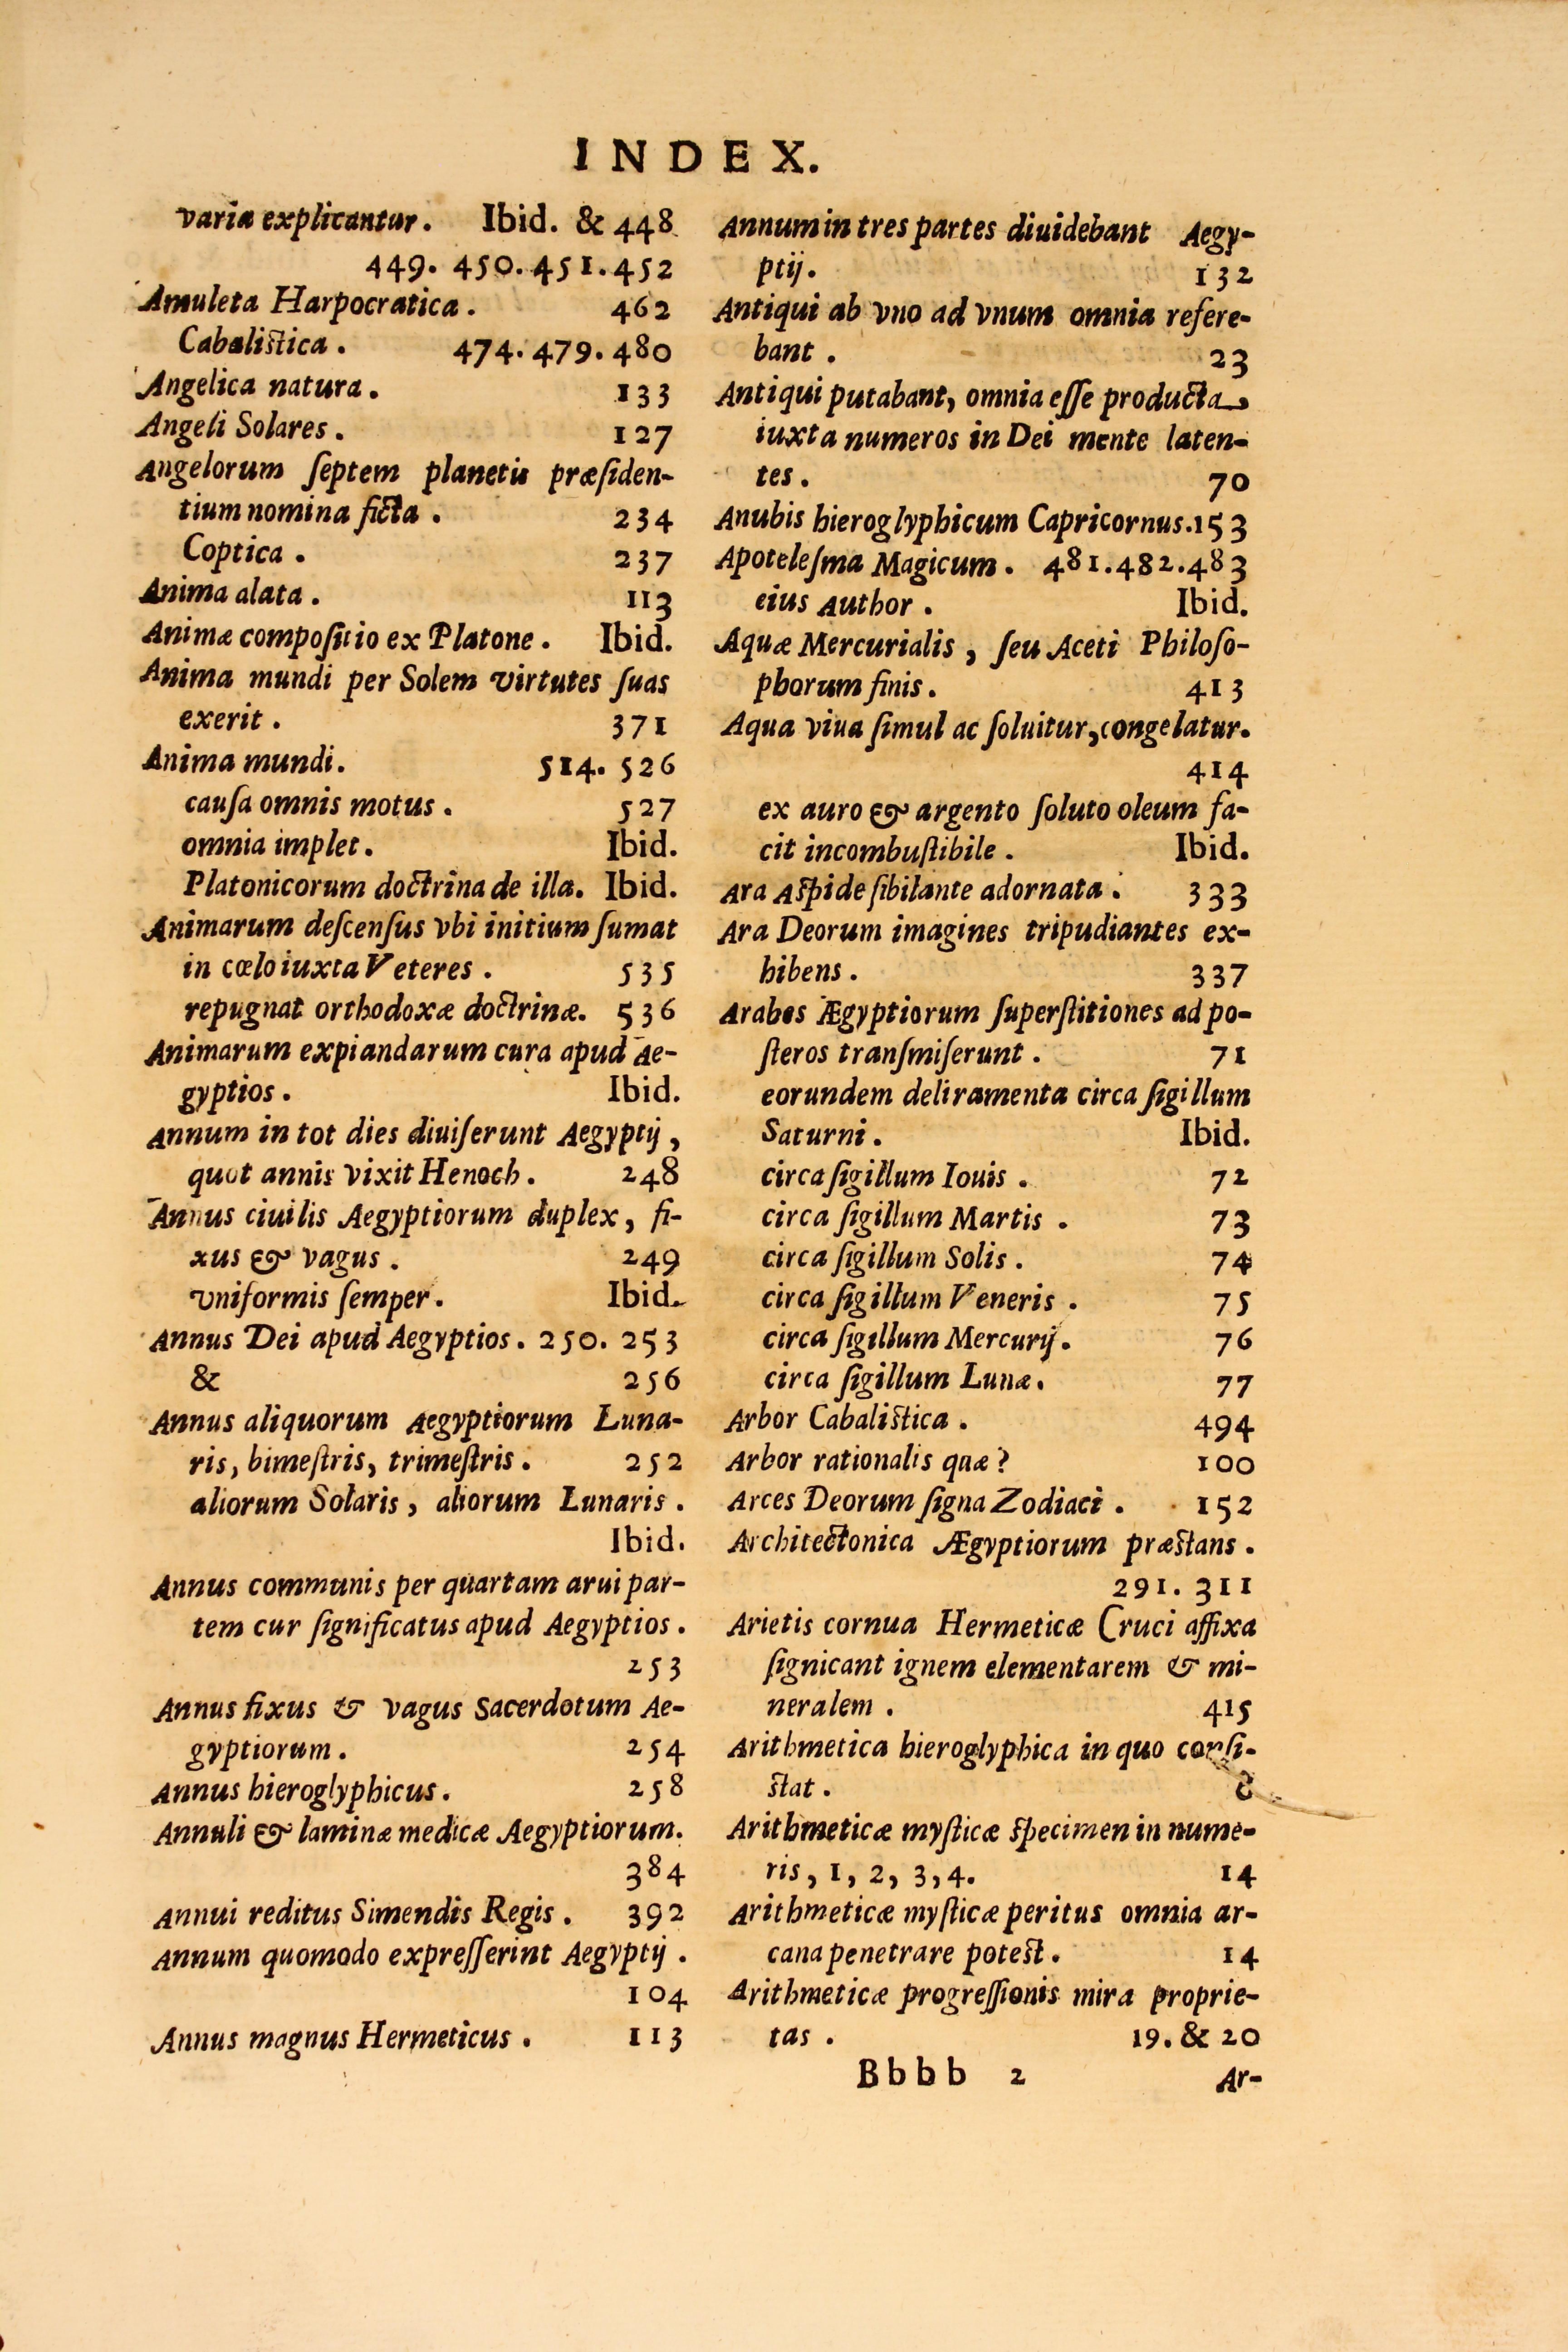 INDEX.
variæ explicantur. Ibid. & 448
449. 450. 451. 452
Amuleta Harpocratica. 462
Cabaliſtica. 474. 479. 480
Angelica natura. 133
Angeli Solares. 127
Angelorum ſeptem planetis præſiden-
tium nomina ficta. 234
Coptica. 237
Anima alata. 113
Animæ compoſitio ex Platone. Ibid.
Anima mundi per Solem virtutes ſuas
exerit. 371
Anima mundi. 514. 526
cauſa omnis motus. 527
omnia implet. Ibid.
Platonicorum doctrina de illa. Ibid.
Animarum deſcenſus vbi initium ſumat
in cœlo iuxta Veteres. 535
repugnat orthodoxæ doctrinæ. 536
Animarum expiandarum cura apud Ae-
gyptios. Ibid.
Annum in tot dies diuiſerunt Aegyptij,
quot annis vixit Henoch. 248
Annus ciuilis Aegyptiorum duplex, fi-
xus & vagus. 249
vniformis ſemper. Ibid.
Annus Dei apud Aegyptios. 250. 253
& 256
Annus aliquorum Aegyptiorum Luna-
ris, bimeſtris, trimeſtris. 252
aliorum Solaris, aliorum Lunaris.
Ibid.
Annus communis per quartam arui par-
tem cur ſignificatus apud Aegyptios.
253
Annus fixus & vagus Sacerdotum Ae-
gyptiorum. 254
Annus hieroglyphicus. 258
Annuli & laminæ medicæ Aegyptiorum.
384
Annui reditus Simendis Regis. 392
Annum quomodo expreſſerint Aegyptij.
104
Annus magnus Hermeticus. 113
Annum in tres partes diuidebant Aegy-
ptij. 132
Antiqui ab vno ad vnum omnia refere-
bant. 23
Antiqui putabant, omnia eſſe producta
iuxta numeros in Dei mente laten-
tes. 70
Anubis hieroglyphicum Capricornus. 153
Apoteleſma Magicum. 481. 482. 483
eius Author. Ibid.
Aquæ Mercurialis, ſeu Aceti Philoſo-
phorum finis. 413
Aqua viua ſimul ac ſoluitur, congelatur.
414
ex auro & argento ſoluto oleum fa-
cit incombuſtibile. Ibid.
Ara Aſpide ſibilante adornata. 333
Ara Deorum imagines tripudiantes ex-
hibens. 337
Arabes Ægyptiorum ſuperſtitiones ad po-
ſteros tranſmiſerunt. 71
eorundem deliramenta circa ſigillum
Saturni. Ibid.
circa ſigillum Iouis. 72
circa ſigillum Martis. 73
circa ſigillum Solis. 74
circa ſigillum Veneris. 75
circa ſigillum Mercurij. 76
circa ſigillum Lunæ. 77
Arbor Cabaliſtica. 494
Arbor rationalis quæ? 100
Arces Deorum ſigna Zodiaci. 152
Architectonica Ægyptiorum præſtans.
291. 311
Arietis cornua Hermeticæ Cruci affixa
ſignicant ignem elementarem & mi-
neralem. 415
Arithmetica hieroglyphica in quo conſi-
ſtat.
Arithmeticæ myſticæ ſpecimen in nume-
ris, 1, 2, 3, 4. 14
Arithmeticæ myſticæ peritus omnia ar-
cana penetrare poteſt. 14
Arithmeticæ progreſſionis mira proprie-
tas. 19. & 20
Bbbb 2 Ar-